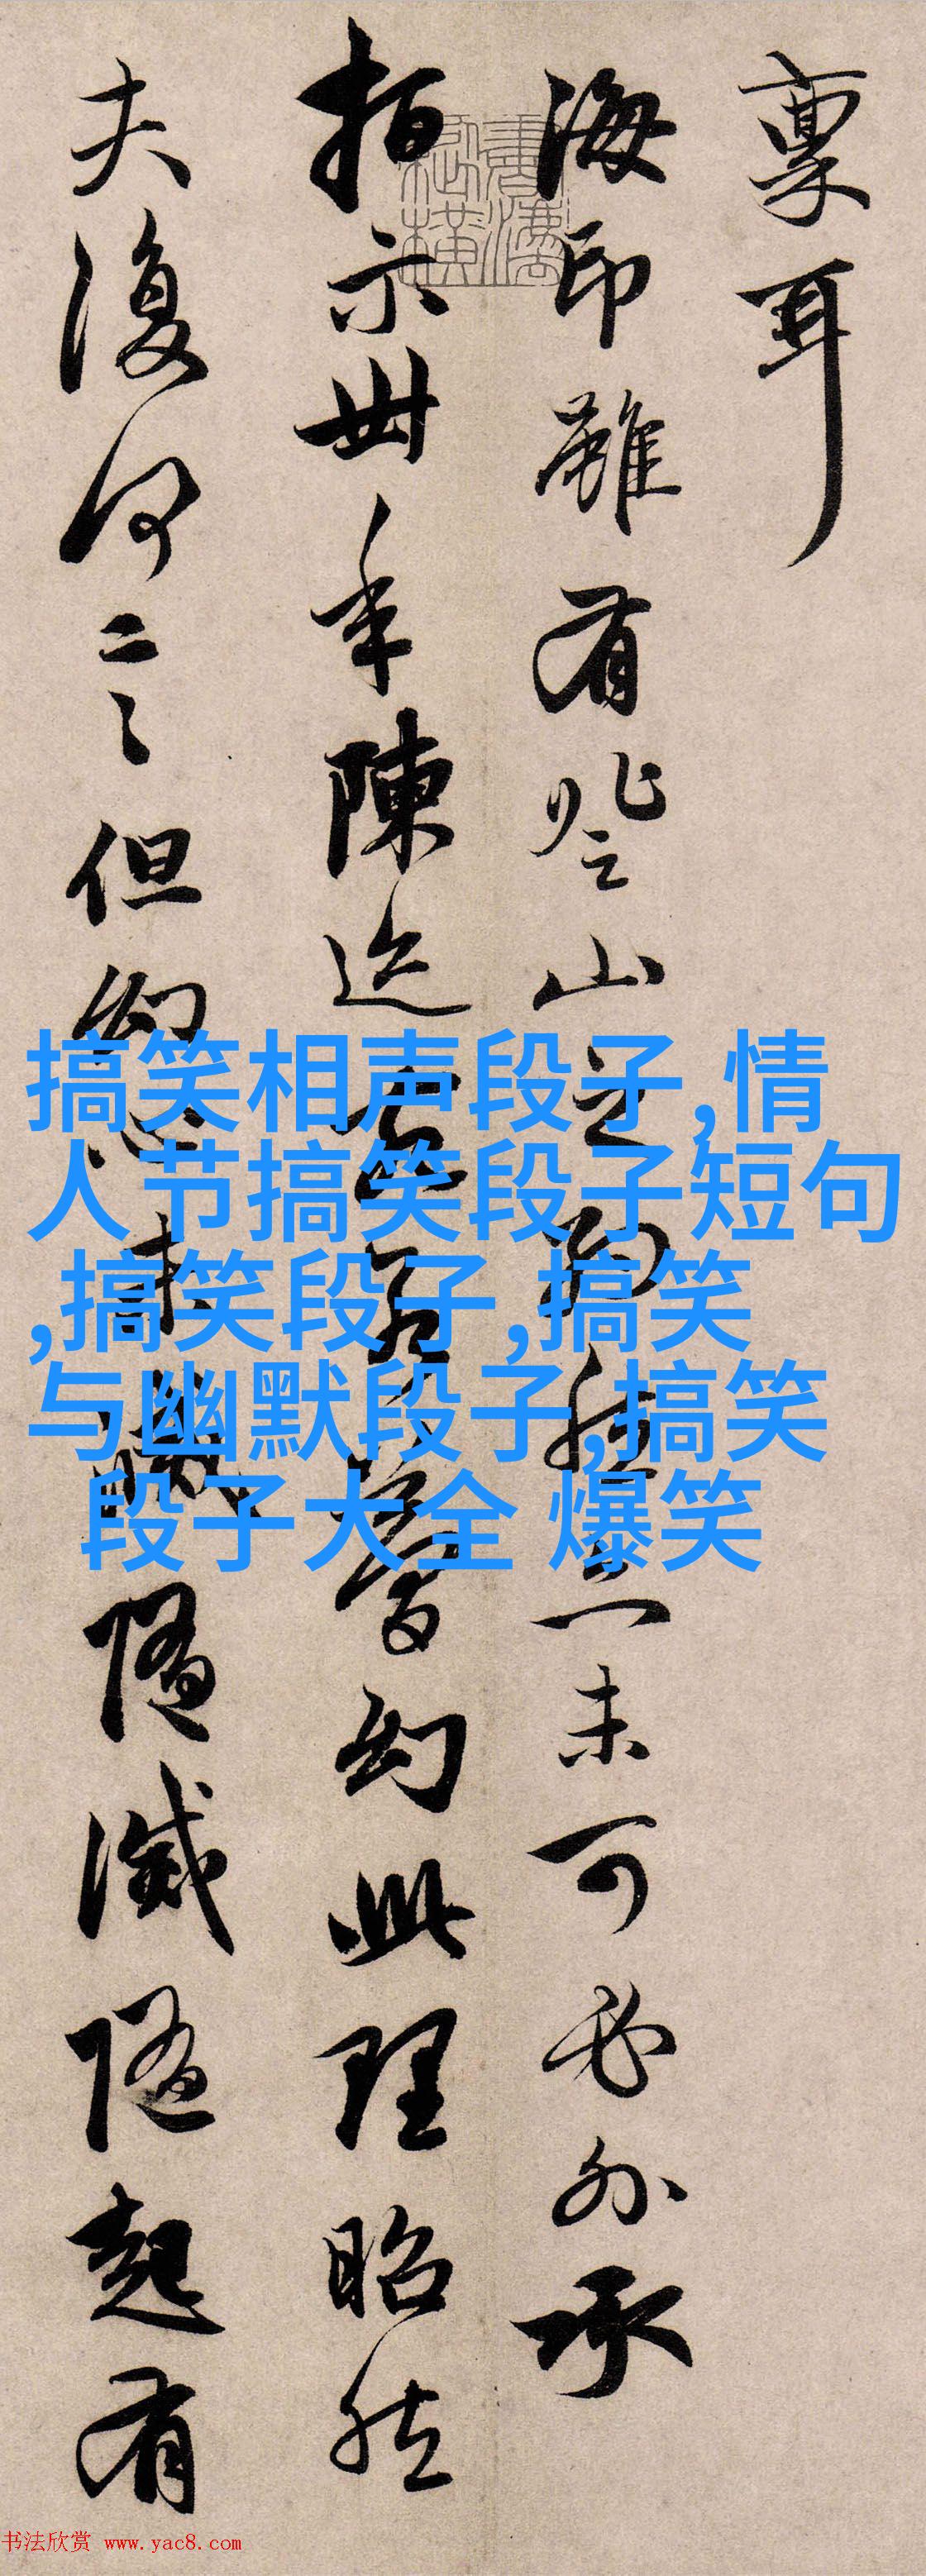 稟耳
海印雖有登山之約然未可必外承
指示卅年陳迹幻此理昭然
夫復何言但幻心未隨滅隨起有
搞笑相声段子,情
人节搞笑段子短句
,搞笑段子,搞笑
与幽默段子,搞笑
段子大全 爆笑
书法欣赏 www.yac8.com